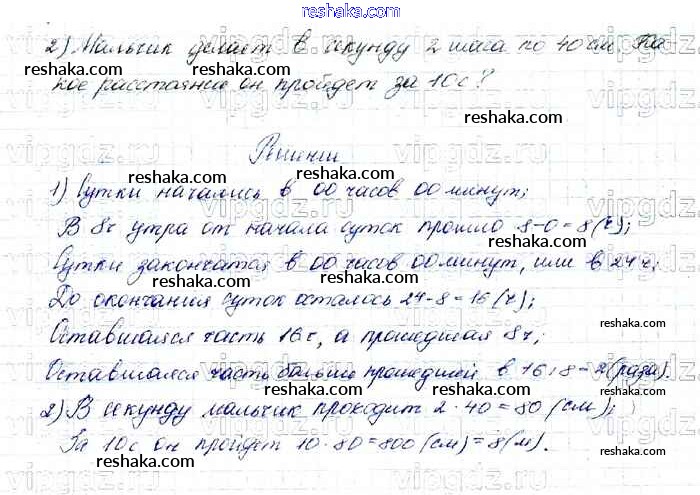 reshaka.com
2) Мальчик делает в секунду 2 шага по 40 см. Ка
reshaka.com reshaka.com reshaka.com
кое расстояние он пройдет за 10 с?
reshaka.com
Решении
reshaka.com reshaka.com
1) Сутки начались в 00 часов 00 минут;
В 8ч утра от начала суток прошло 8-0=8(ч);
reshaka.com
Сутки закончатся в 00 часов 00 минут, или в 24 ч;
reshaka.com reshaka.com
До окончания суток осталось 24-8=16(ч);
reshaka.com
Оставшаяся часть 16ч, а прошедшая 8ч;
reshaka.com
Оставшаяся часть больше прошедшей в 16:8=2(раза).
reshaka.com reshaka.com
2) В секунду мальчик проходит 2·40=80(см);
reshaka.com
За 10с он пройдет 10·80=800(см)=8(м).
reshaka.com reshaka.com
vipgdz.ru
reshaka.com